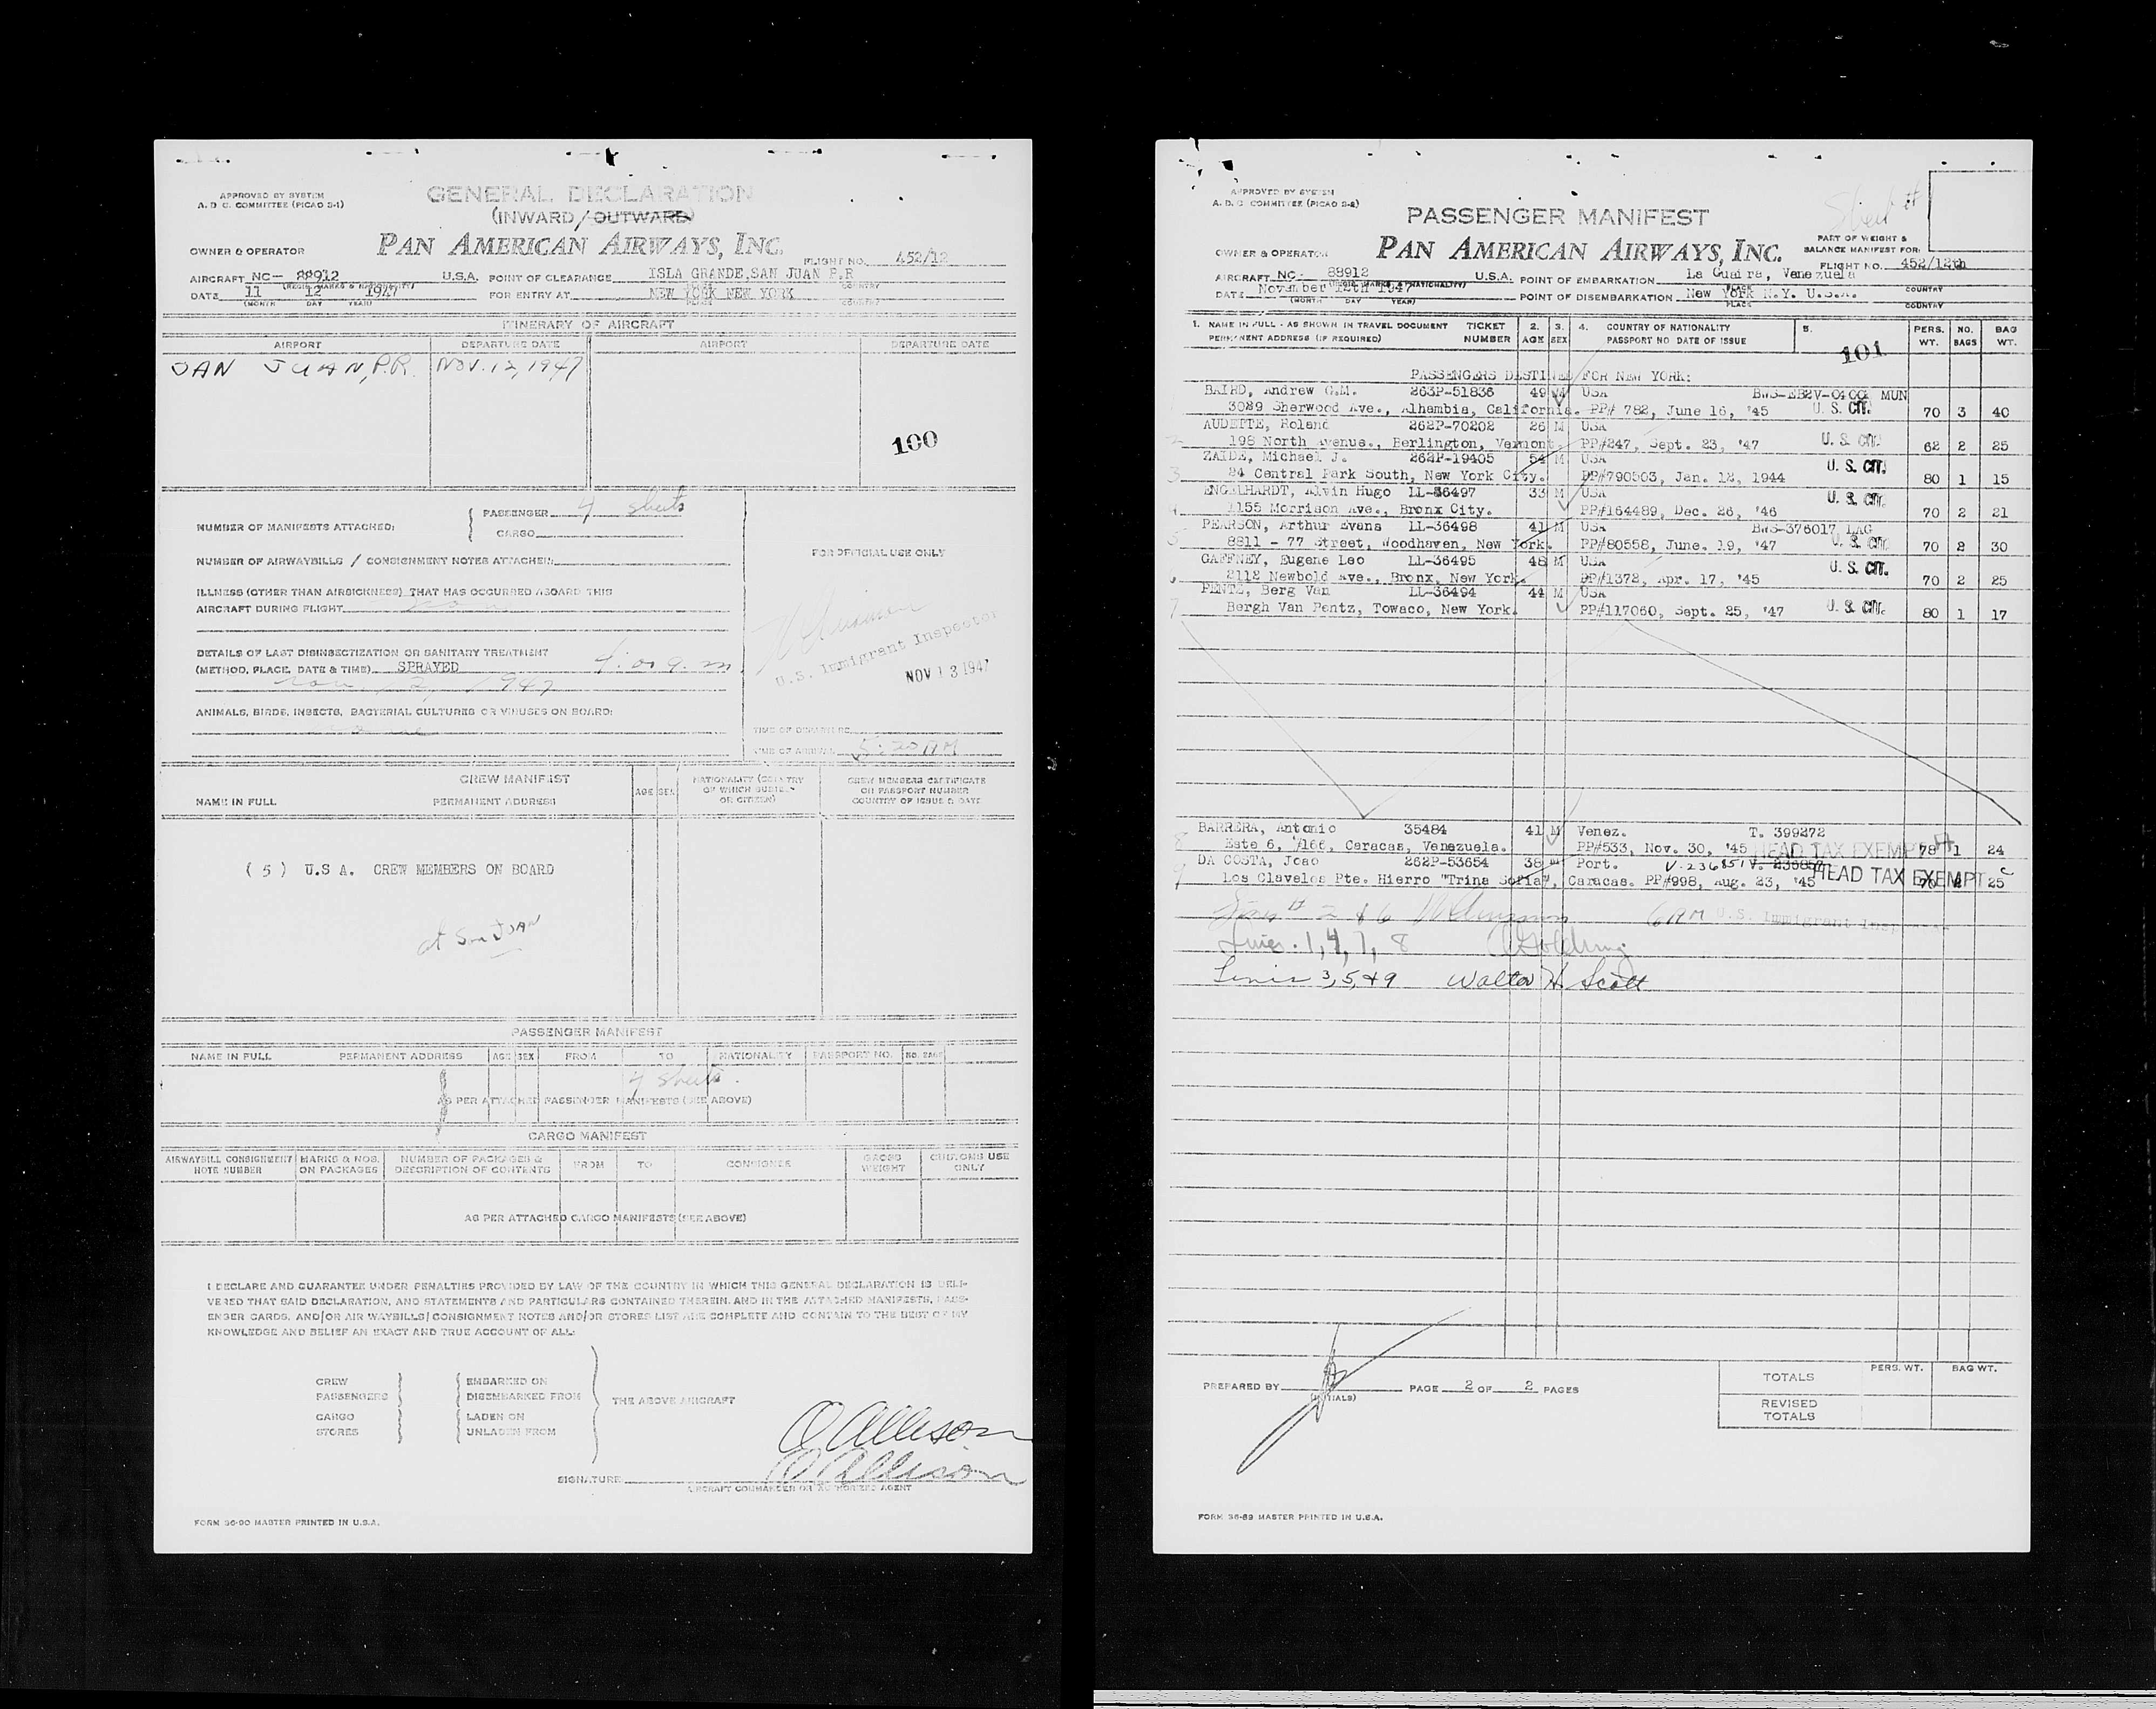 APPROVED BY SYSTEM
A. D. C. COMMITTEE (PICAO S-1)
GENERAL DECLARATION
(INWARD / OUTWARD)
OWNER & OPERATOR
PAN AMERICAN AIRWAYS, INC.
FLIGHT NO. 452/12
AIRCRAFT NC- 88912 U.S.A. POINT OF CLEARANCE ISLA GRANDE, SAN JUAN P.R
DATE 11 12 1947 FOR ENTRY AT NEW YORK NEW YORK
(MONTH DAY YEAR)
ITINERARY OF AIRCRAFT
AIRPORT DEPARTURE DATE AIRPORT DEPARTURE DATE
SAN JUAN, P.R. NOV. 12, 1947
100
NUMBER OF MANIFESTS ATTACHED:
PASSENGER 4 sheets
CARGO
NUMBER OF AIRWAYBILLS / CONSIGNMENT NOTES ATTACHED:
ILLNESS (OTHER THAN AIRSICKNESS) THAT HAS OCCURRED ABOARD THIS
AIRCRAFT DURING FLIGHT
DETAILS OF LAST DISINSECTIZATION OR SANITARY TREATMENT
(METHOD, PLACE, DATE & TIME) SPRAYED
ANIMALS, BIRDS, INSECTS, BACTERIAL CULTURES OR VIRUSES ON BOARD:
FOR OFFICIAL USE ONLY
U.S. Immigrant Inspector
NOV 13 1947
TIME OF ARRIVAL 5:20 AM
CREW MANIFEST
NAME IN FULL PERMANENT ADDRESS AGE SEX
NATIONALITY (COUNTRY
OF WHICH SUBJECT
OR CITIZEN)
CREW MEMBERS CERTIFICATE
OR PASSPORT NUMBER
COUNTRY OF ISSUE & DATE
( 5 ) U.S A. CREW MEMBERS ON BOARD
at San JUAN
PASSENGER MANIFEST
NAME IN FULL PERMANENT ADDRESS AGE SEX FROM TO NATIONALITY PASSPORT NO. NO. BAGS
4 sheets.
AS PER ATTACHED PASSENGER MANIFESTS (SEE ABOVE)
CARGO MANIFEST
AIRWAYBILL CONSIGNMENT NOTE NUMBER MARKS & NOS. ON PACKAGES NUMBER OF PACKAGES & DESCRIPTION OF CONTENTS FROM TO CONSIGNEE GROSS WEIGHT CUSTOMS USE ONLY
AS PER ATTACHED CARGO MANIFESTS (SEE ABOVE)
I DECLARE AND GUARANTEE UNDER PENALTIES PROVIDED BY LAW OF THE COUNTRY IN WHICH THIS GENERAL DECLARATION IS DELI-
VERED THAT SAID DECLARATION, AND STATEMENTS AND PARTICULARS CONTAINED THEREIN, AND IN THE ATTACHED MANIFESTS, PASS-
ENGER CARDS, AND/OR AIR WAYBILLS/CONSIGNMENT NOTES AND/OR STORES LIST ARE COMPLETE AND CONTAIN TO THE BEST OF MY
KNOWLEDGE AND BELIEF AN EXACT AND TRUE ACCOUNT OF ALL:
CREW EMBARKED ON
PASSENGERS DISEMBARKED FROM THE ABOVE AIRCRAFT
CARGO LADEN ON
STORES UNLADEN FROM
O Allison
O Allison
SIGNATURE
AIRCRAFT COMMANDER OR AUTHORIZED AGENT
FORM 36-90 MASTER PRINTED IN U.S.A.
APPROVED BY SYSTEM
A. D. C. COMMITTEE (PICAO S-2)
Sheet #
PASSENGER MANIFEST
PART OF WEIGHT &
BALANCE MANIFEST FOR:
OWNER & OPERATOR PAN AMERICAN AIRWAYS, INC.
FLIGHT NO. 452/12th
AIRCRAFT NC- 88912 U.S.A. POINT OF EMBARKATION La Guaira, Venezuela
DATE November 12th 1947 POINT OF DISEMBARKATION New York N.Y. U.S.A.
(MONTH DAY YEAR) PLACE COUNTRY
1. NAME IN FULL - AS SHOWN IN TRAVEL DOCUMENT TICKET 2. 3. 4. COUNTRY OF NATIONALITY 5. PERS. NO. BAG
PERMANENT ADDRESS (IF REQUIRED) NUMBER AGE SEX PASSPORT NO DATE OF ISSUE WT. BAGS WT.
101
PASSENGERS DESTINED FOR NEW YORK:
BAIRD, Andrew G.M. 263P-51836 49 M USA BWS-EB2V-0400 MUN
3029 Sherwood Ave., Alhambia, California. PP# 782, June 16, '45 U. S. CIT. 70 3 40
AUDETTE, Roland 262P-70202 26 M USA
2 198 North Avenue., Berlington, Vermont. PP#247, Sept. 23, '47 U. S. CIT. 62 2 25
ZAIDE, Michael J. 262P-19405 54 M USA
3 24 Central Park South, New York City. PP#790503, Jan. 12, 1944 U. S. CIT. 80 1 15
ENGELHARDT, Alvin Hugo LL-36497 33 M USA
4 1155 Morrison Ave., Bronx City. PP#164489, Dec. 26, '46 U. S. CIT. 70 2 21
PEARSON, Arthur Evans LL-36498 41 M USA BWS-376017 LAG
5 8811 - 77 Street, Woodhaven, New York. PP#80558, June. 19, '47 U. S. CIT. 70 2 30
GAFFNEY, Eugene Leo LL-36495 48 M USA
2112 Newbold Ave., Bronx, New York. PP#1372, Apr. 17, '45 U. S. CIT. 70 2 25
PENTZ, Berg Van LL-36494 44 M USA
7 Bergh Van Pentz, Towaco, New York. PP#117060, Sept. 25, '47 U. S. CIT. 80 1 17
BARRERA, Antonio 35484 41 M Venez. T. 399272
8 Este 6, #166, Caracas, Venezuela. PP#533, Nov. 30, '45 HEAD TAX EXEMPT 78 1 24
DA COSTA, Joao 262P-53654 38 M Port.
9 Los Claveles Pte. Hierro "Trina Sofia", Caracas. PP#998, Aug. 23, '45 HEAD TAX EXEMPT 70 2 25
Lines # 2 & 6 6AM U.S. Immigrant Inspector
Lines. 1, 4, 7, 8
Lines 3, 5, & 9 Walter H. Scott
PREPARED BY (INITIALS) PAGE 2 OF 2 PAGES
PERS. WT. BAG WT.
TOTALS
REVISED
TOTALS
FORM 36-89 MASTER PRINTED IN U.S.A.